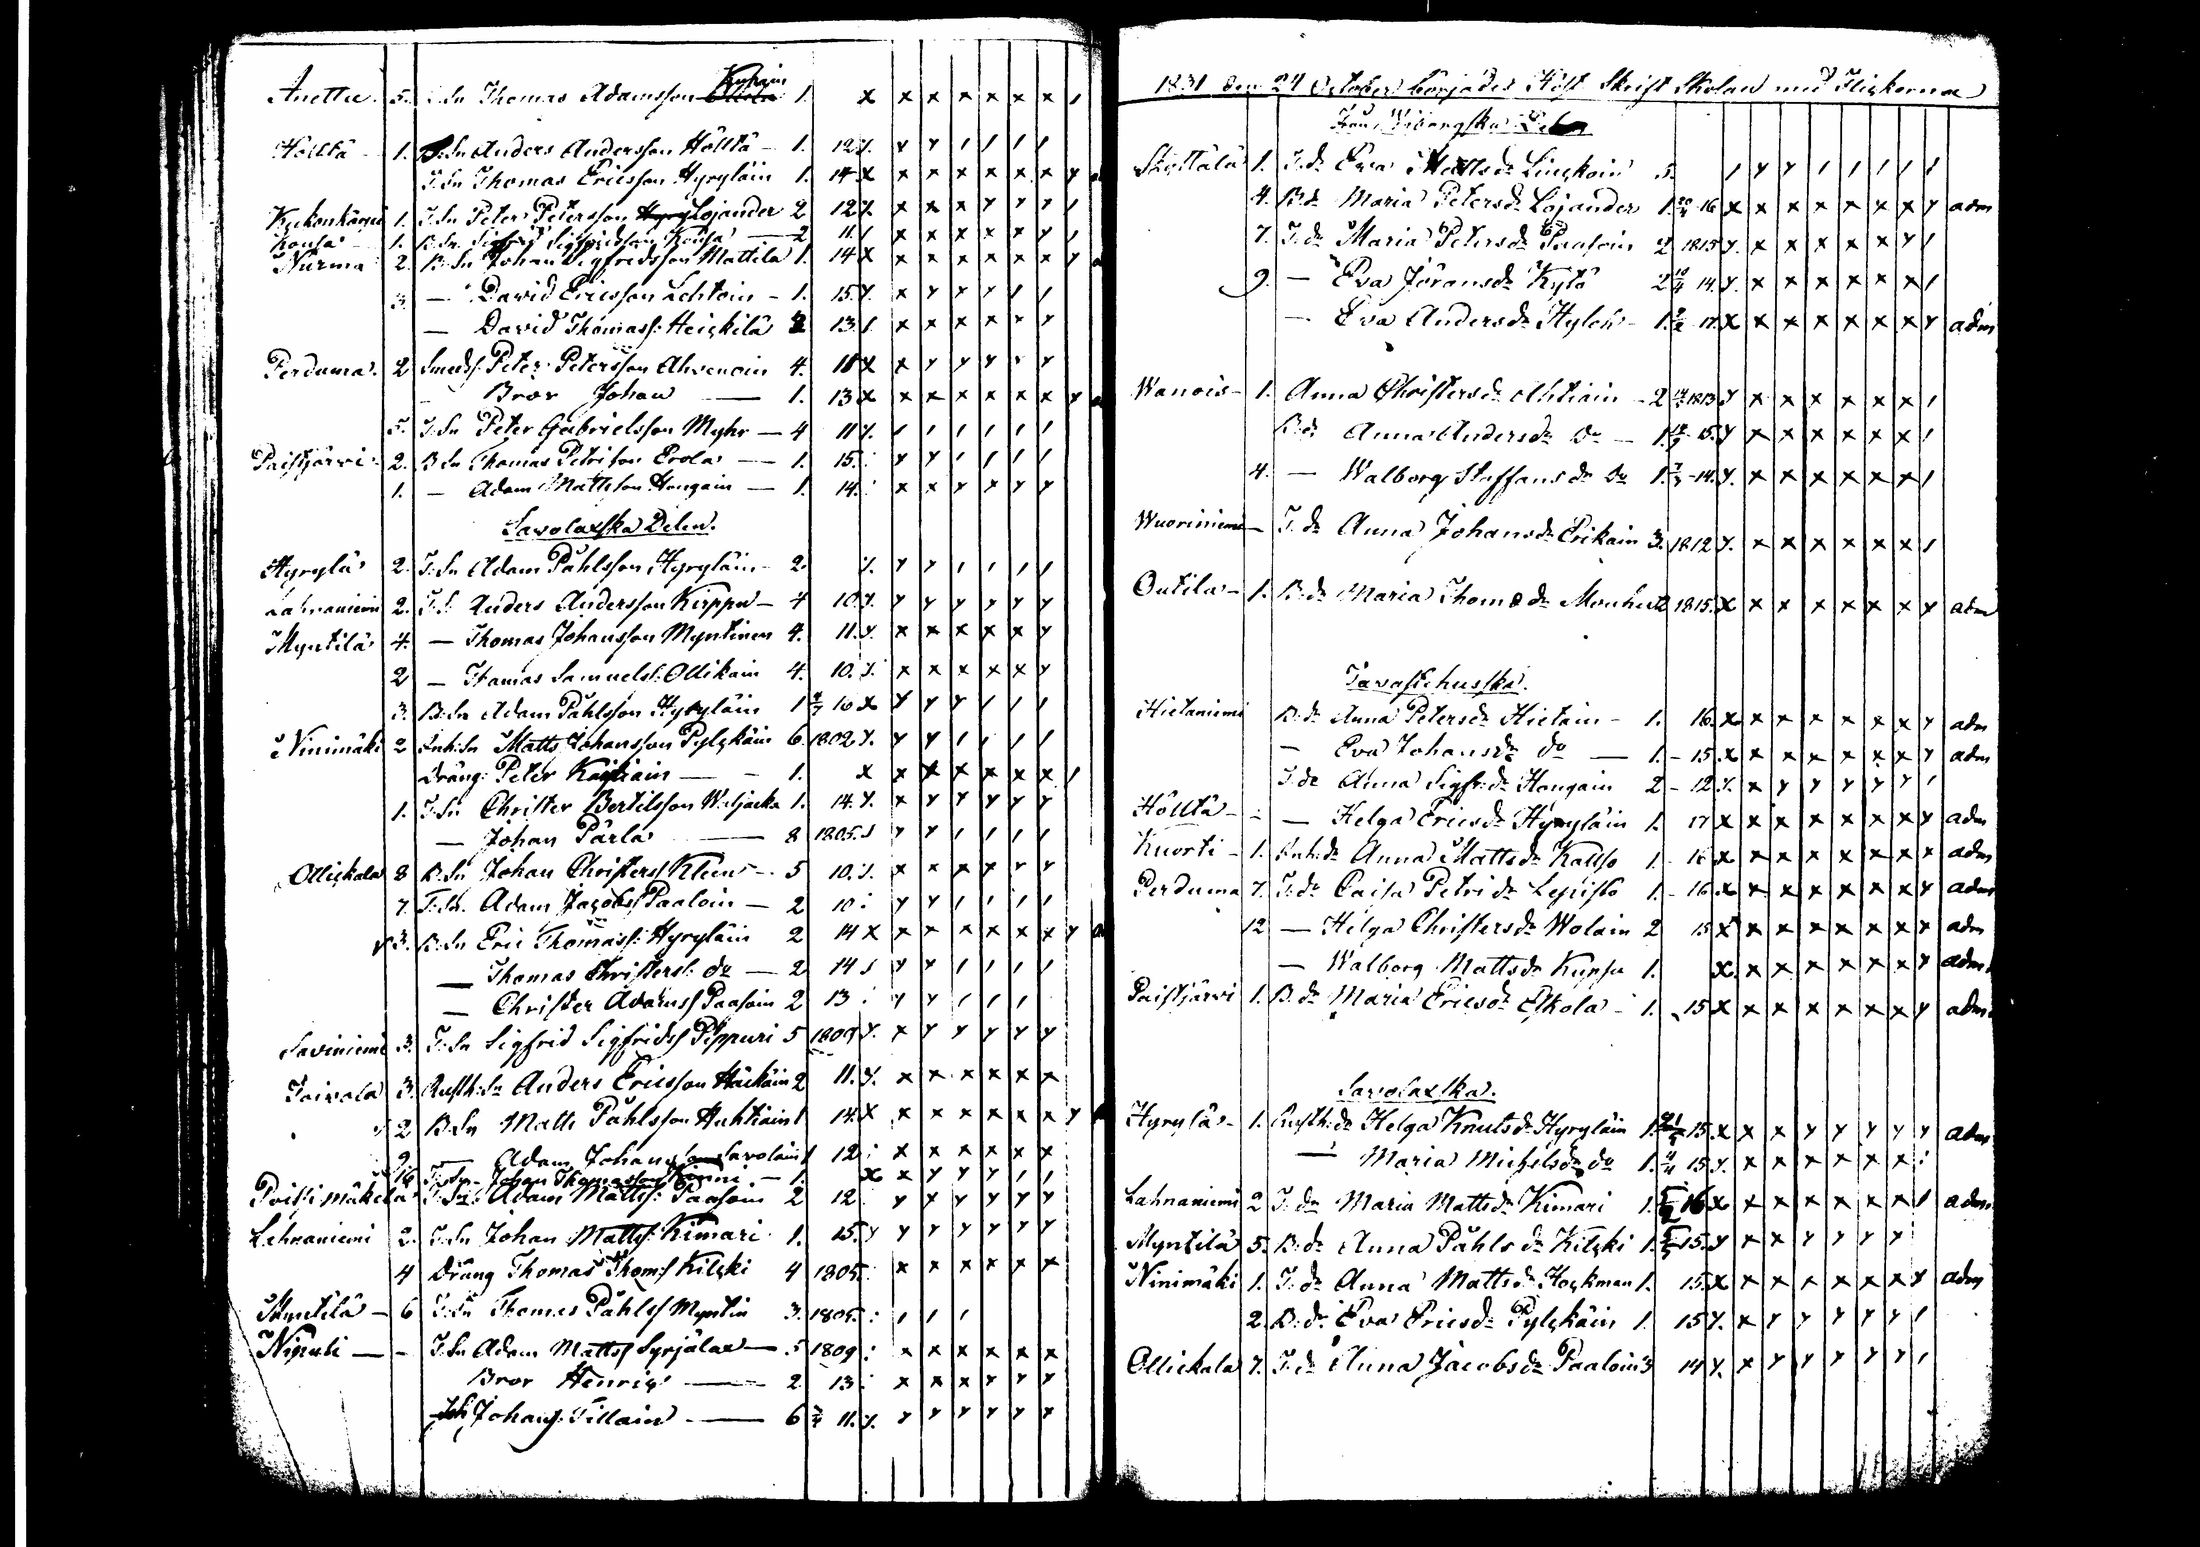 Anettu. 5. T:Sn Thomas Adamsson Kuparin 1. x x x x x x x /
Höltta 1. B:Sn Anders Andersson Hölttä 1. 12 y. y y / / / /
T:Sn Thomas Ericsson Hyryläin 1. 14 x x x x x x x y
1. T:Sn Peter Petersson Lojander 2 12 y. x x x y y y /
Kousa 1. B:Sn Sigfrid Sigfridsson Kousa 2 11. / x x x x x x /
Nurma 2. B:Sn Johan Sigfridsson Mattila 1. 14 x x x x x x x y
3. — David Ericsson Lehtoin 1. 15. y. x y y y / /
— David Thomass: Heickilä 2 13 /. x x x x x y
Perduma. 2 Smeds: Peter Petersson Ahvenoin 4. 11 x x y y y y y
Bror Johan — 1. 13 x x x x x x x y
5. T:Sn Peter Gabrielsson Myhr — 4 11 y. / / / / / /
Paistjärvi 2. B:Sn Thomas Petrison Erola — 1. 15. y y / / / /
1. — Adam Mattsson Hongain — 1. 14. x x y x y y
Savolaxska Delen.
Hyrylä 2. T:Sn Adam Påhlsson Hyryläin 2. y. y y / / / /
Lahnaniemi 2. T:S. Anders Andersson Kirppu 4 10. y. y y y y y y
Myntilä 4. — Thomas Johansson Myntinen 4. 11. y. x x x x x y
2 — Thomas Samuelss: Ollikain 4. 10. y. x x x x x y
3. B:Sn Adam Påhlsson Hyryläin 1 10 x y y y / / /
Ninimäki 2 Inh:Sn Matts Johansson Pylckäin 6. 1802 y. y y / / / /
Dräng: Peter — 1. x x x x x x x /
1. T:Sn Christer Bertilsson Waljacka 1. 14. y. x y y y y y
— Johan Pärlä — 8 1805. / y y / / / /
Ollickala 8 B:Sn Johan Christerss Kleen 5 10. y. x x x x y y
7. T:Sn. Adam Jacobss Paaloin — 2 10 y y / / / /
3. B:Sn Eric Thomass: Hyryläin 2 14 x x x x x x x y
— Thomas Christerss: do — 2 14 / y y / / / /
— Christer Adamss Paasoin 2 13 y y / / /
Saviniemi 3. T:Sn Sigfrid Sigfridss Pippuri 5 1809 y. x y y y y y
Toivola 3. Rusth:Sn Anders Ericsson Häckäin 2 11. y. x x x x x x
2 B:Sn Matts Påhlsson Huhtiain 1 14. x x x x x x x y
— Adam Johansson Savolain 1 12 x x x x x x
T:Sn Johan Thomasson — 1. x x y y y / /
T:Sn Adam Mattss: Paasoin 2 12 y x y y y y
Lahnaniemi 2. T:Sn Johan Mattss: Kimari 1. 15. y y y y y y y
4 Dräng Thomas Thomss Kilcki 4 1805. x x x x x x
Myntilä 6 T:Sn Thomas Påhlss Myntin 3. 1805. / / /
T:Sn Adam Mattss Syrjälä — 5 1809 x x x x x x
Bror Henric — 2 13 x x x y y y
Johanss: Tillain — 6 11. y. y y y y y x
1831 den 24 October börjades Höst Skrift Skolan med Flickorna
Från Wiborgska Delen
Skottälä 1. T:dr Eva Mattsdr Linckoin 5. / y y / / / / /
4. B:dr Maria Petersdr Lojander 1 16 x x x x x x x y adm
7. T:dr Maria Petersdr Paasoin 2 1815 y. x x x x x y /
9. — Eva Jöransdr Kylä 2 14. y. x x x x x x /
— Eva Andersdr Hylén 1. 17. x x x x x x x y adm
Wanois 1. Anna Christersdr Ahtiain 2 1813 y x x x x x x /
B:dr Anna Andersdr Do — 1. 15. y x x x x x x /
4. — Walborg Staffansdr Do 1. 14. y. x x x x x x /
Wuoriniemi — T:dr Anna Johansdr Erikain 3. 1812 y. x x x x x x /
Outila — 1. B:dr Maria Thomædr Mouhu 2 1815. x x x x x x x y adm
Tavastehuska.
Hietaniemi B:dr Anna Petersdr Hietain 1. 16. x x x x x x x y adm
— Eva Johansdr do — 1. 15 x x x x x x x y adm
T:dr Anna Sigfr:dr Hongain 2 12 y. x y y y y y /
Hölltä — — Helga Ericsdr Hyryläin 1. 17 x x x x x x x y adm
Kuorti 1. Inh:dr Anna Mattsdr Kallso 1 16 x x x x x x x x adm
Perduma 7. T:dr Caisa Petridr Lepistö 1 16 x x x x x x x y adm
12 — Helga Christersdr Wolain 2 15 x x x x x x x y adm
— Walborg Mattsdr Kupsu 1. x. x x x x x x y adm
Paistjärvi 1. B:dr Maria Ericsdr Eskola 1. 15 x x x x x x x y adm
Savolaxska.
Hyrylä 1. Rusth:dr Helga Knutsdr Hyryläin 1. 15. x x x y y y y y adm
— Maria Michelsdr do 1. 15 y. x x x x x x
Lahnaniemi 2 T:dr Maria Mattsdr Kimari 1. 16 x x x x x x x / adm
Myntilä 5. B:dr Anna Påhlsdr Kilcki 1. 15. y x x y y y y
Ninimäki 1. T:dr Anna Mattsdr Hockman 1. 15. x x x x x x x y adm
2. B:dr Eva Ericsdr Pylckäin 1. 15 y. x y y y y y /
Ollickala 7. T:dr Anna Jacobsdr Paaloin 3 14 y. x y y y y y /